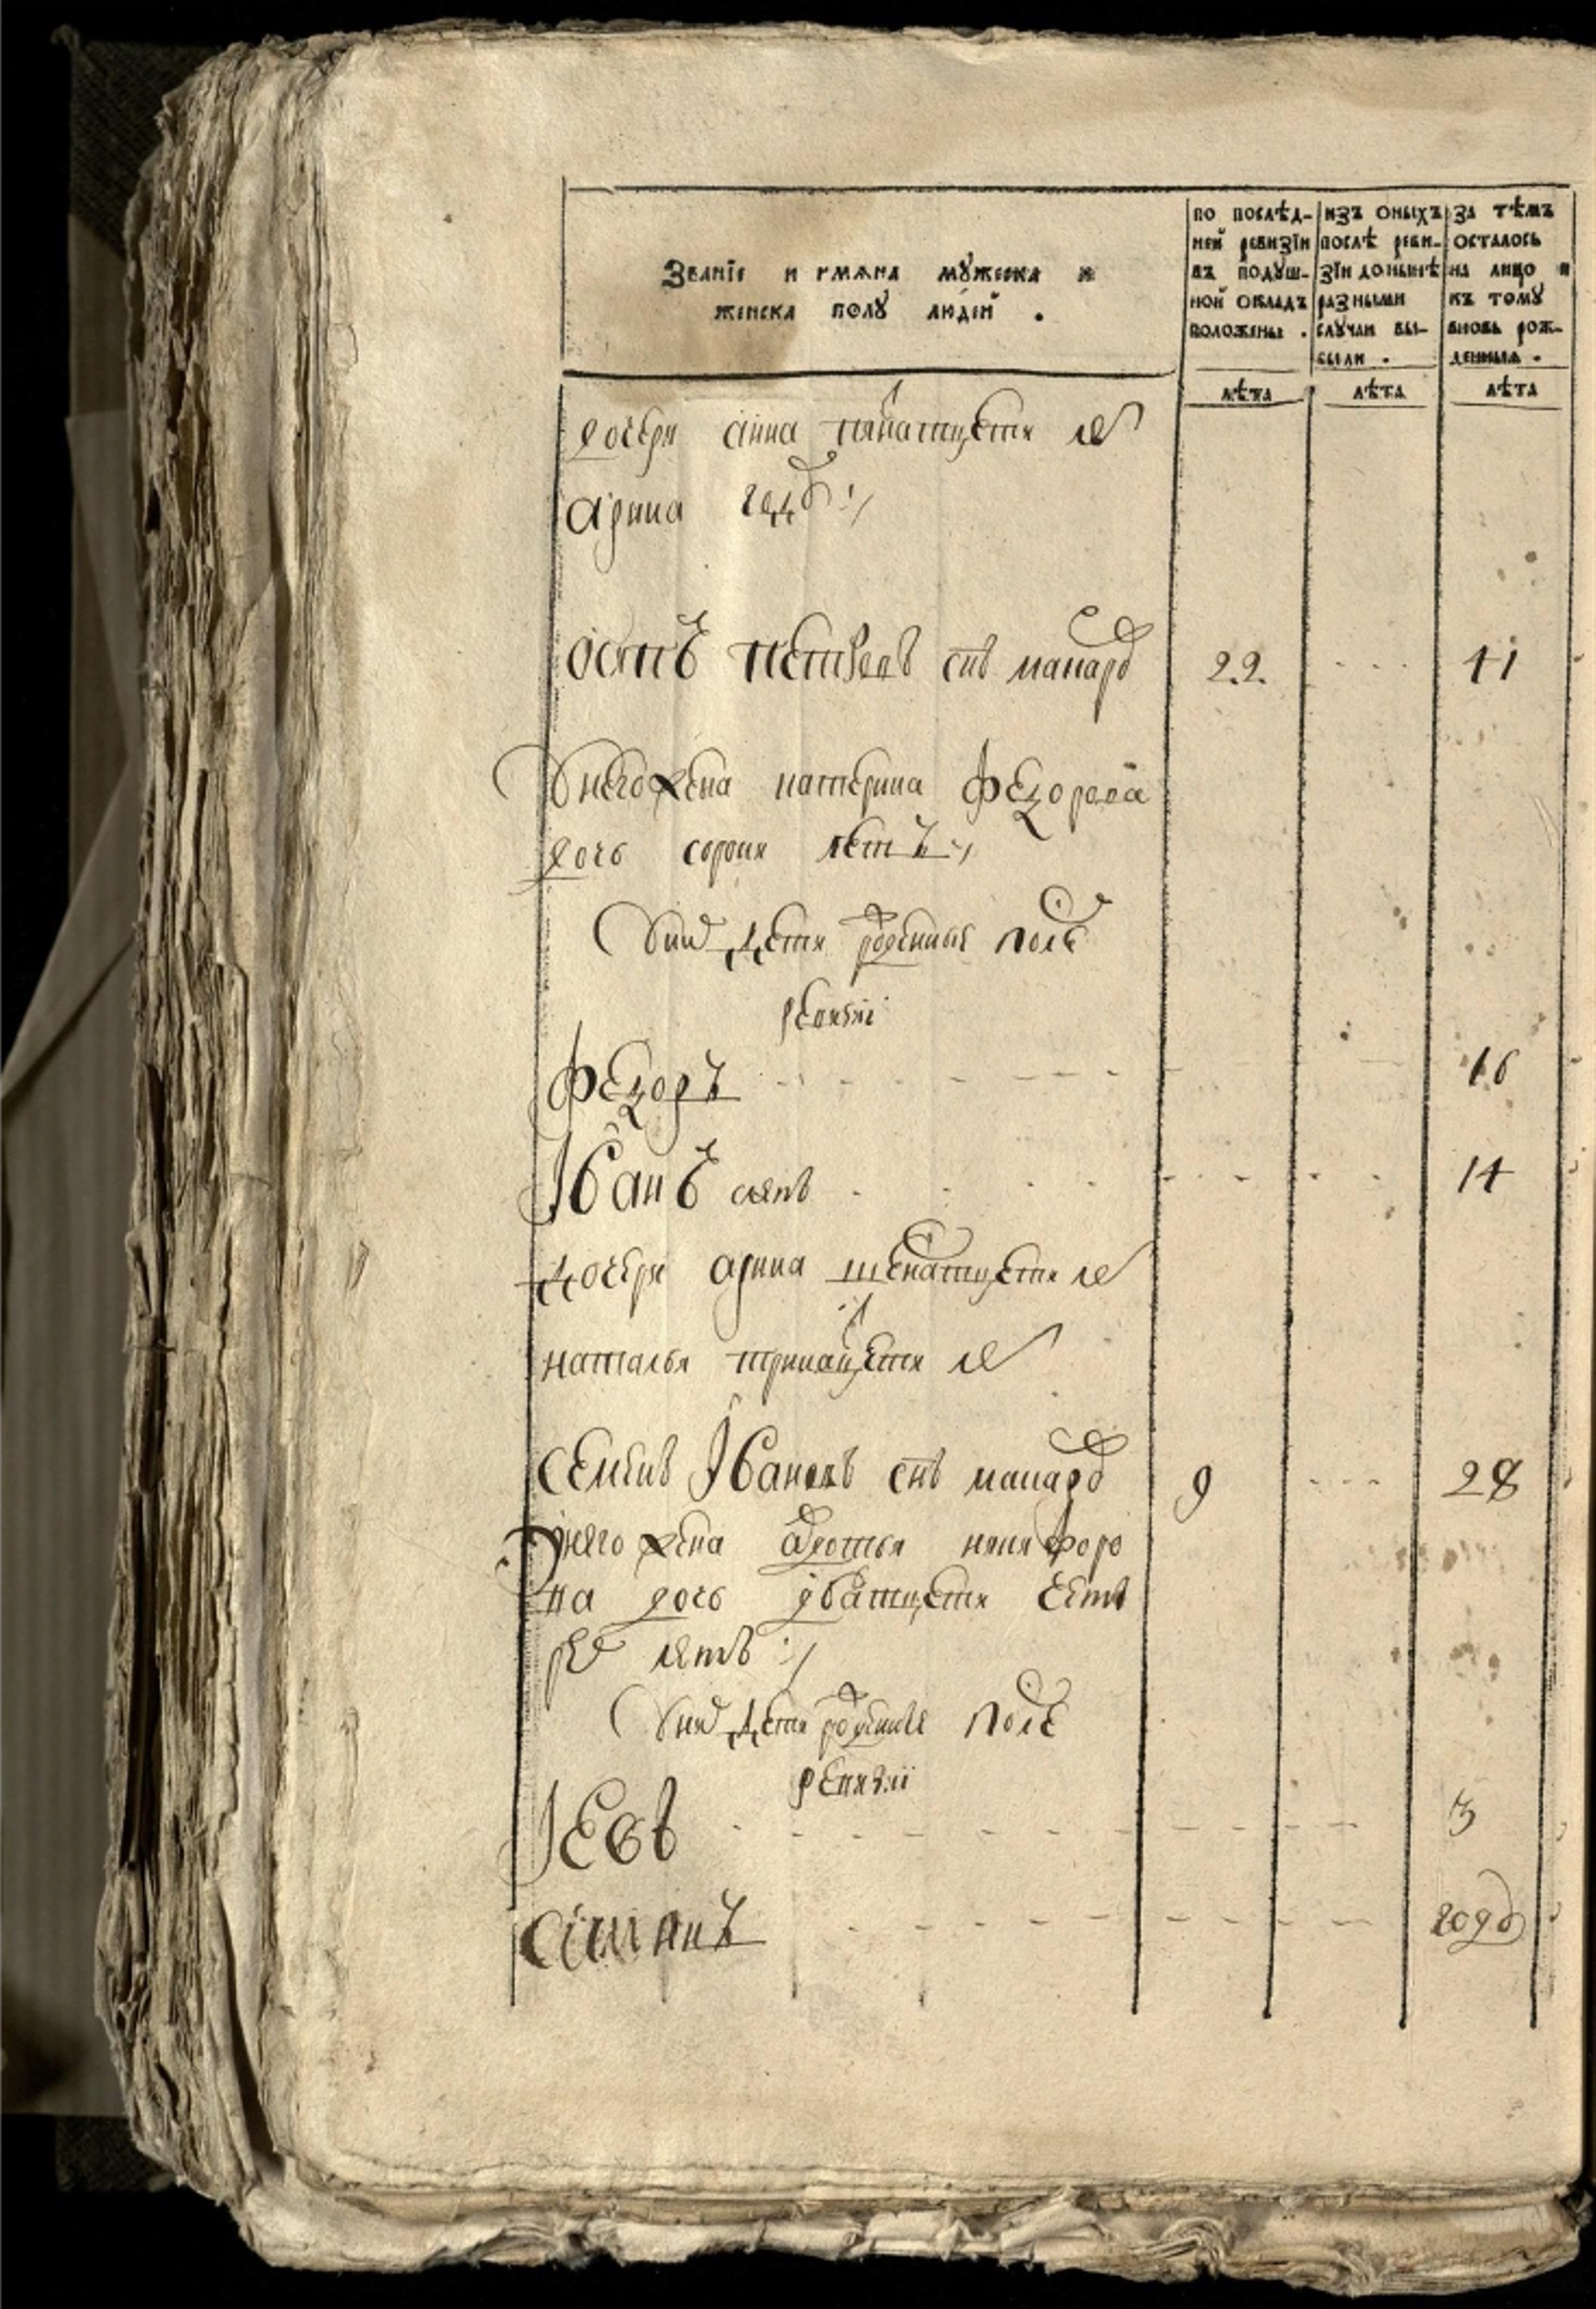 Званїе и имяна мужеска и
женска полу людей .
по послѣд-
ней ревизїи
въ подуш-
ной окладъ
положены .
изъ оныхъ
послѣ реви-
зїи донынѣ
разными
случаи вы-
были .
за тѣмъ
осталось
на лицо и
къ тому
вновь рож-
денныя .
лѣта
лѣта
лѣта
дочери анна пятнатцети ле
арина году :/
осипъ петровъ снъ макаро 22. 41
унего жена катерина федорова
дочь сорока летъ :/
уних дети рожденные после
ревизиі
Федоръ 16
Іванъ 14
дочери арина шеснатцети ле
наталья тринатцети ле
семенъ Івановъ снъ макаро 9 28
унего жена авдотья никифоро
на дочь дватцети четве
ре летъ :/
уних дети рожденные после
ревизиі
Іевъ 3
годъ